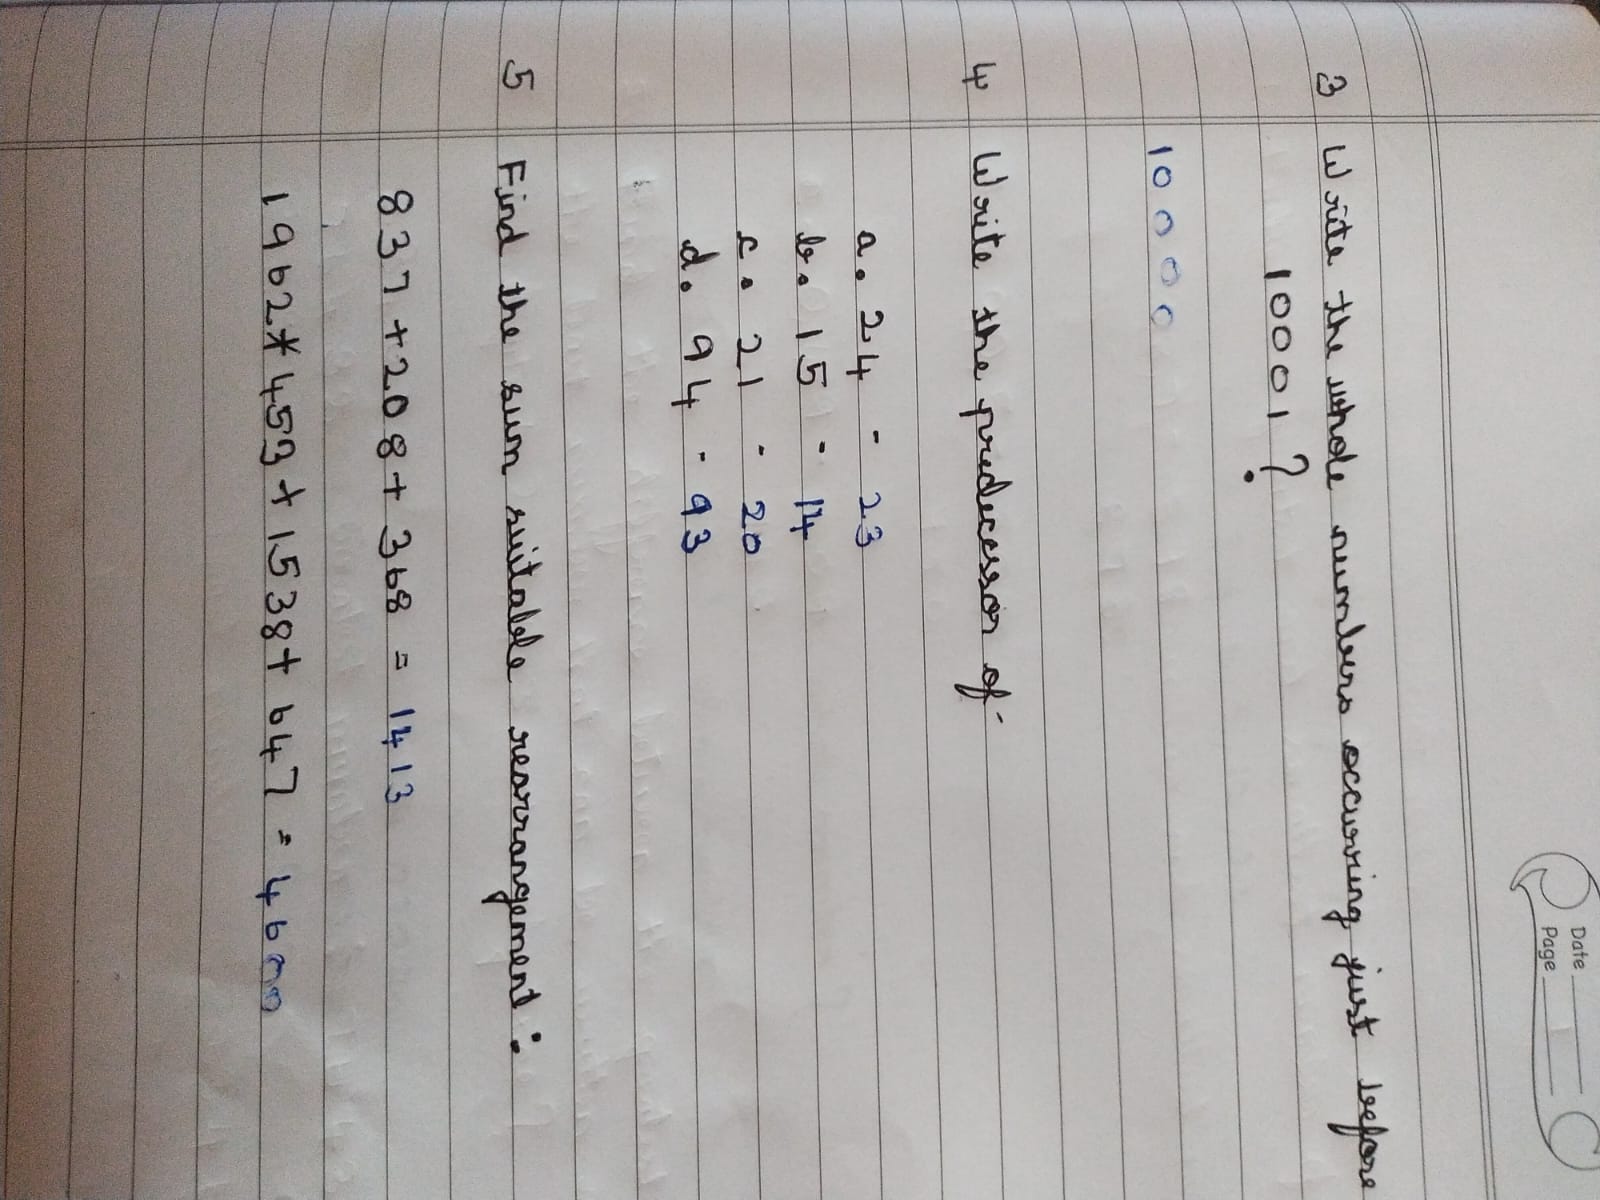 Date
Page
3 Write the whole numbers occurring just before
10001 ?
10000
4 Write the predecessor of
a. 24 - 23
b. 15 - 14
c. 21 - 20
d. 94 - 93
5 Find the sum suitable rearrangement :
837 + 208 + 368 = 1413
1962 * 453 + 1538 + 647 = 4600